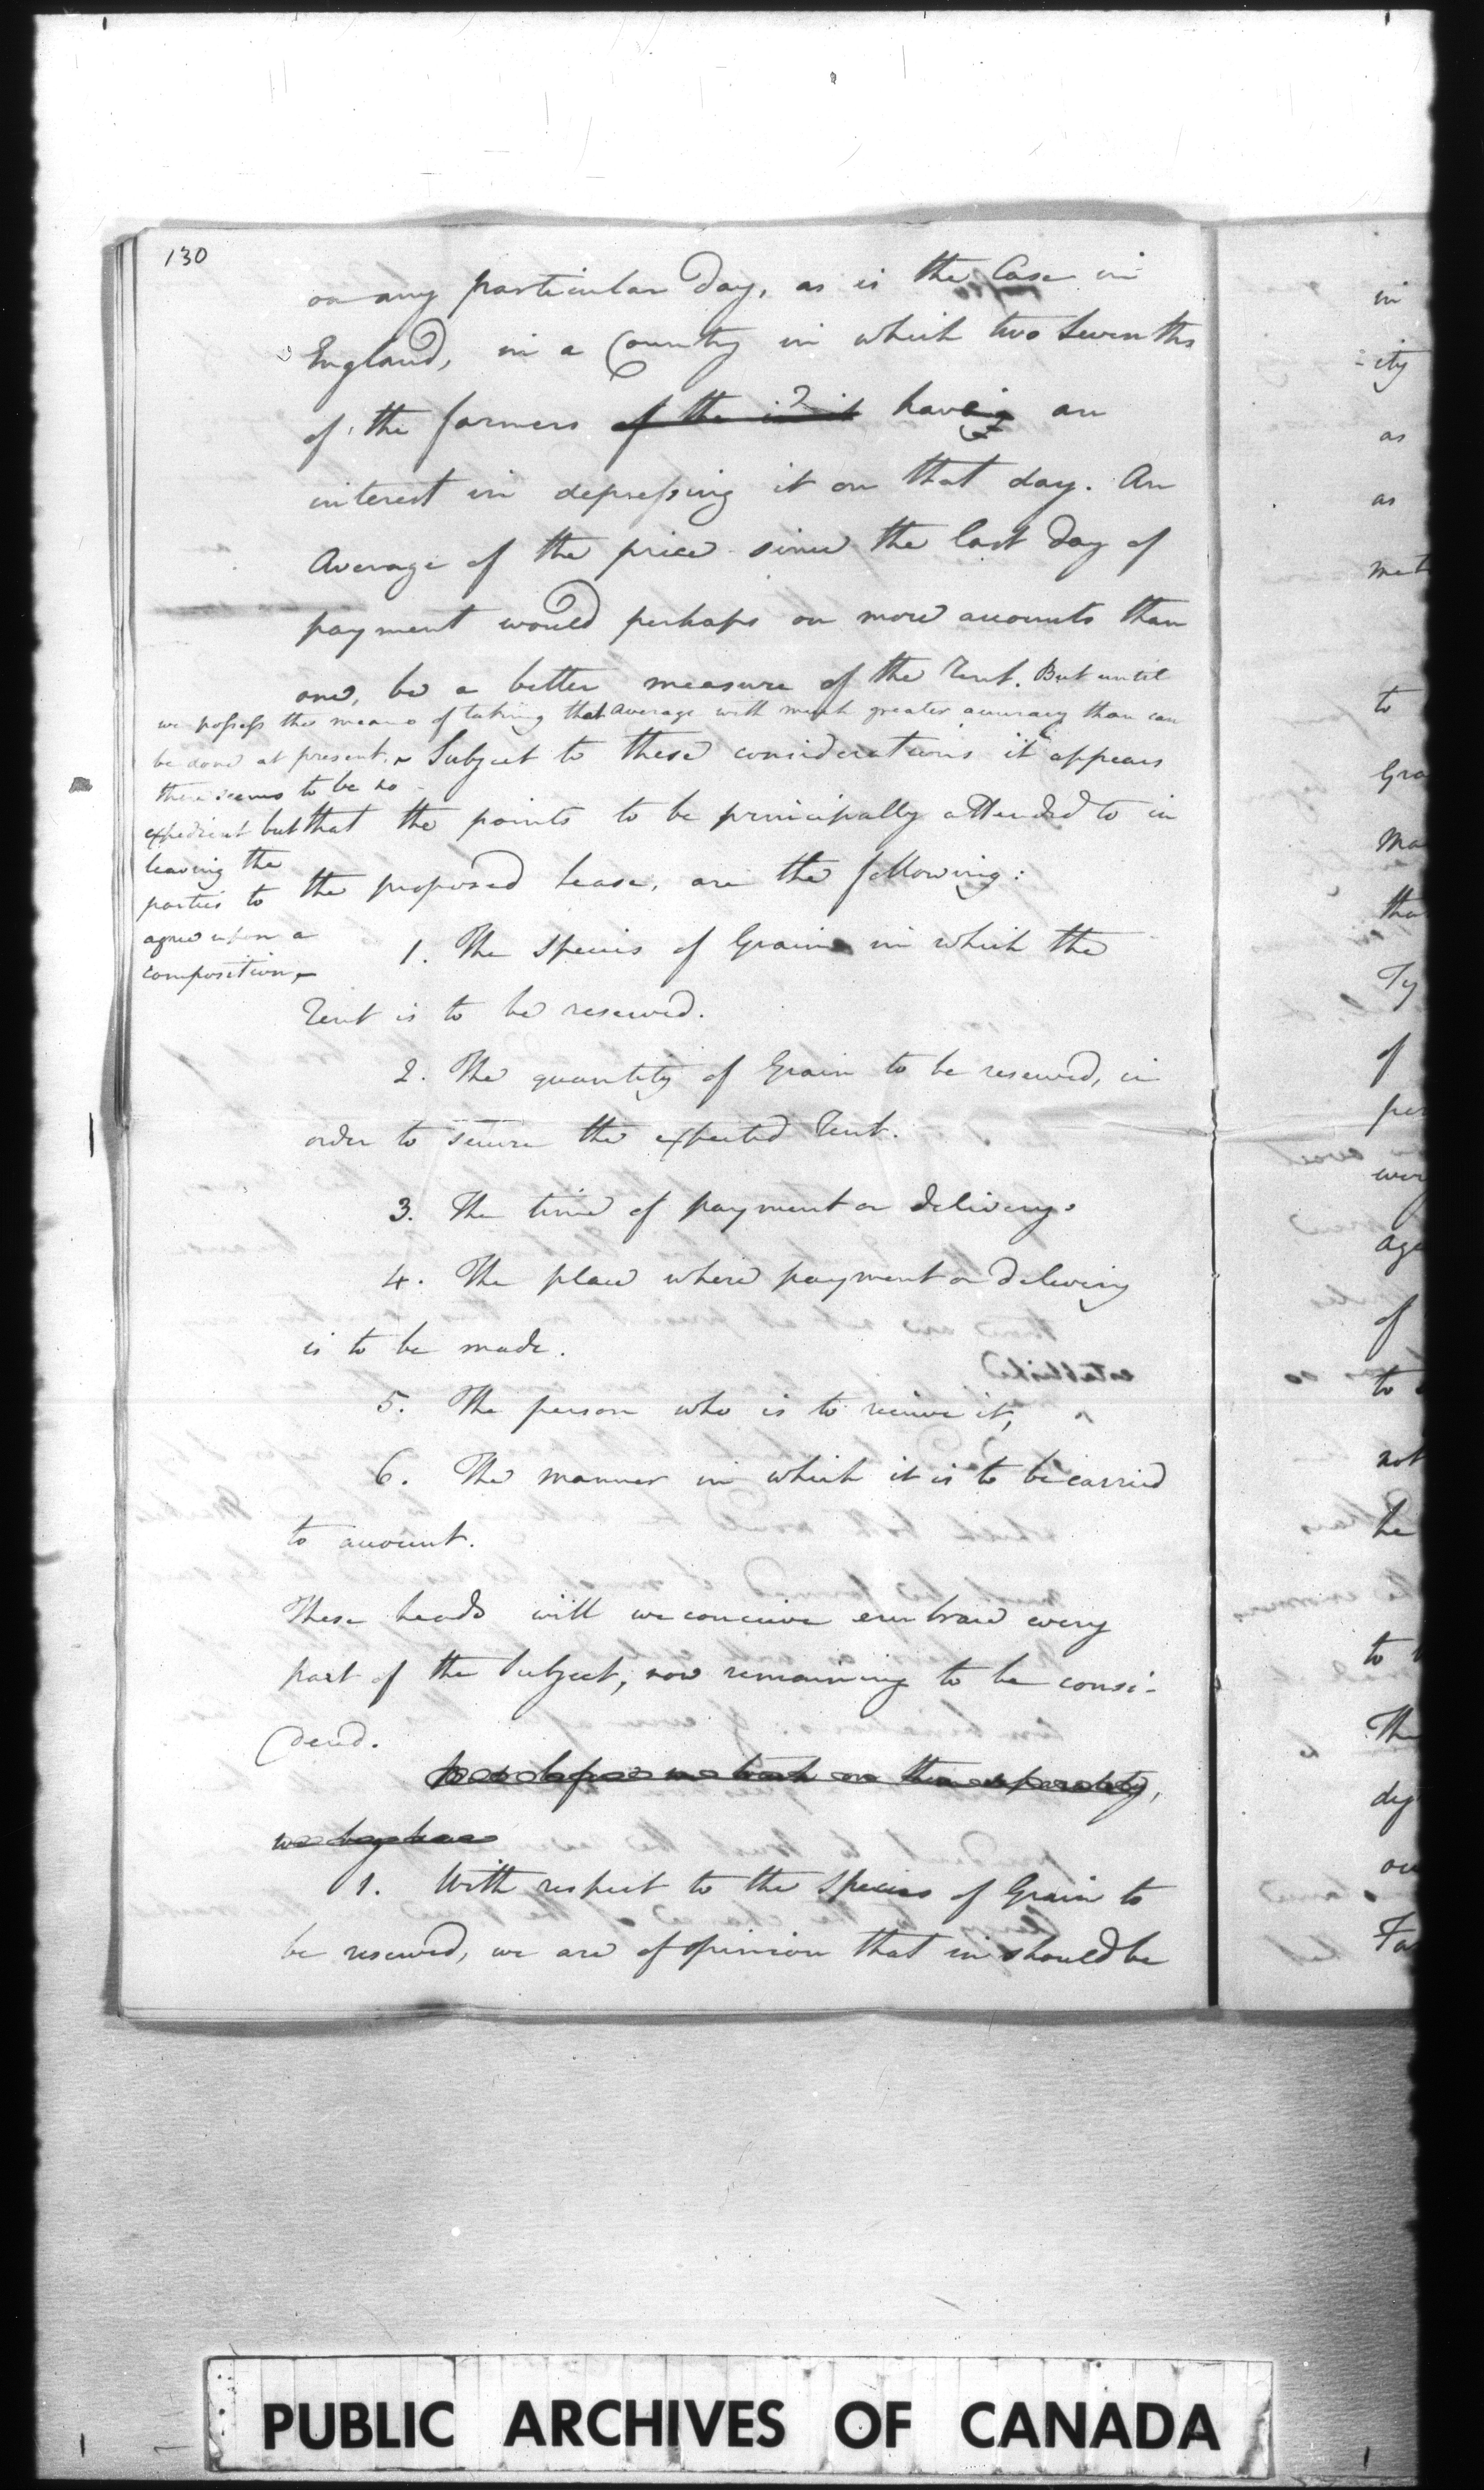 130
on any particular Day, as is the Case in
England, in a Country in which two Sevenths
of the farmers of the have an
interest in depressing it on that day. An
Average of the price since the last Day of
payment would perhaps on more accounts than
one, be a better measure of the Rent. But until
we possess the means of taking that Average with much greater accuracy than can
be done at present.
there seems to be no
expedient but
leaving the
parties to
agree upon a
composition,
Subject to these considerations it appears
that the points to be principally attended to in
the proposed lease, are the following:
1. The Species of Grain in which the
Rent is to be reserved.
2. The quantity of Grain to be reserved, in
order to secure the expected Rent.
3. The time of payment or delivery.
4. The place where payment or delivery
is to be made.
5. The person who is to receive it,
6. The manner in which it is to be carried
to account.
These heads will we conceive embrace every
part of the Subject, now remaining to be consi-
dered.
But before we touch on them separately,
we beg leave
1. With respect to the Species of Grain to
be reserved, we are of opinion that in should be
in
ity
as
as
to
of
of
to
not
he
to
The
PUBLIC ARCHIVES OF CANADA